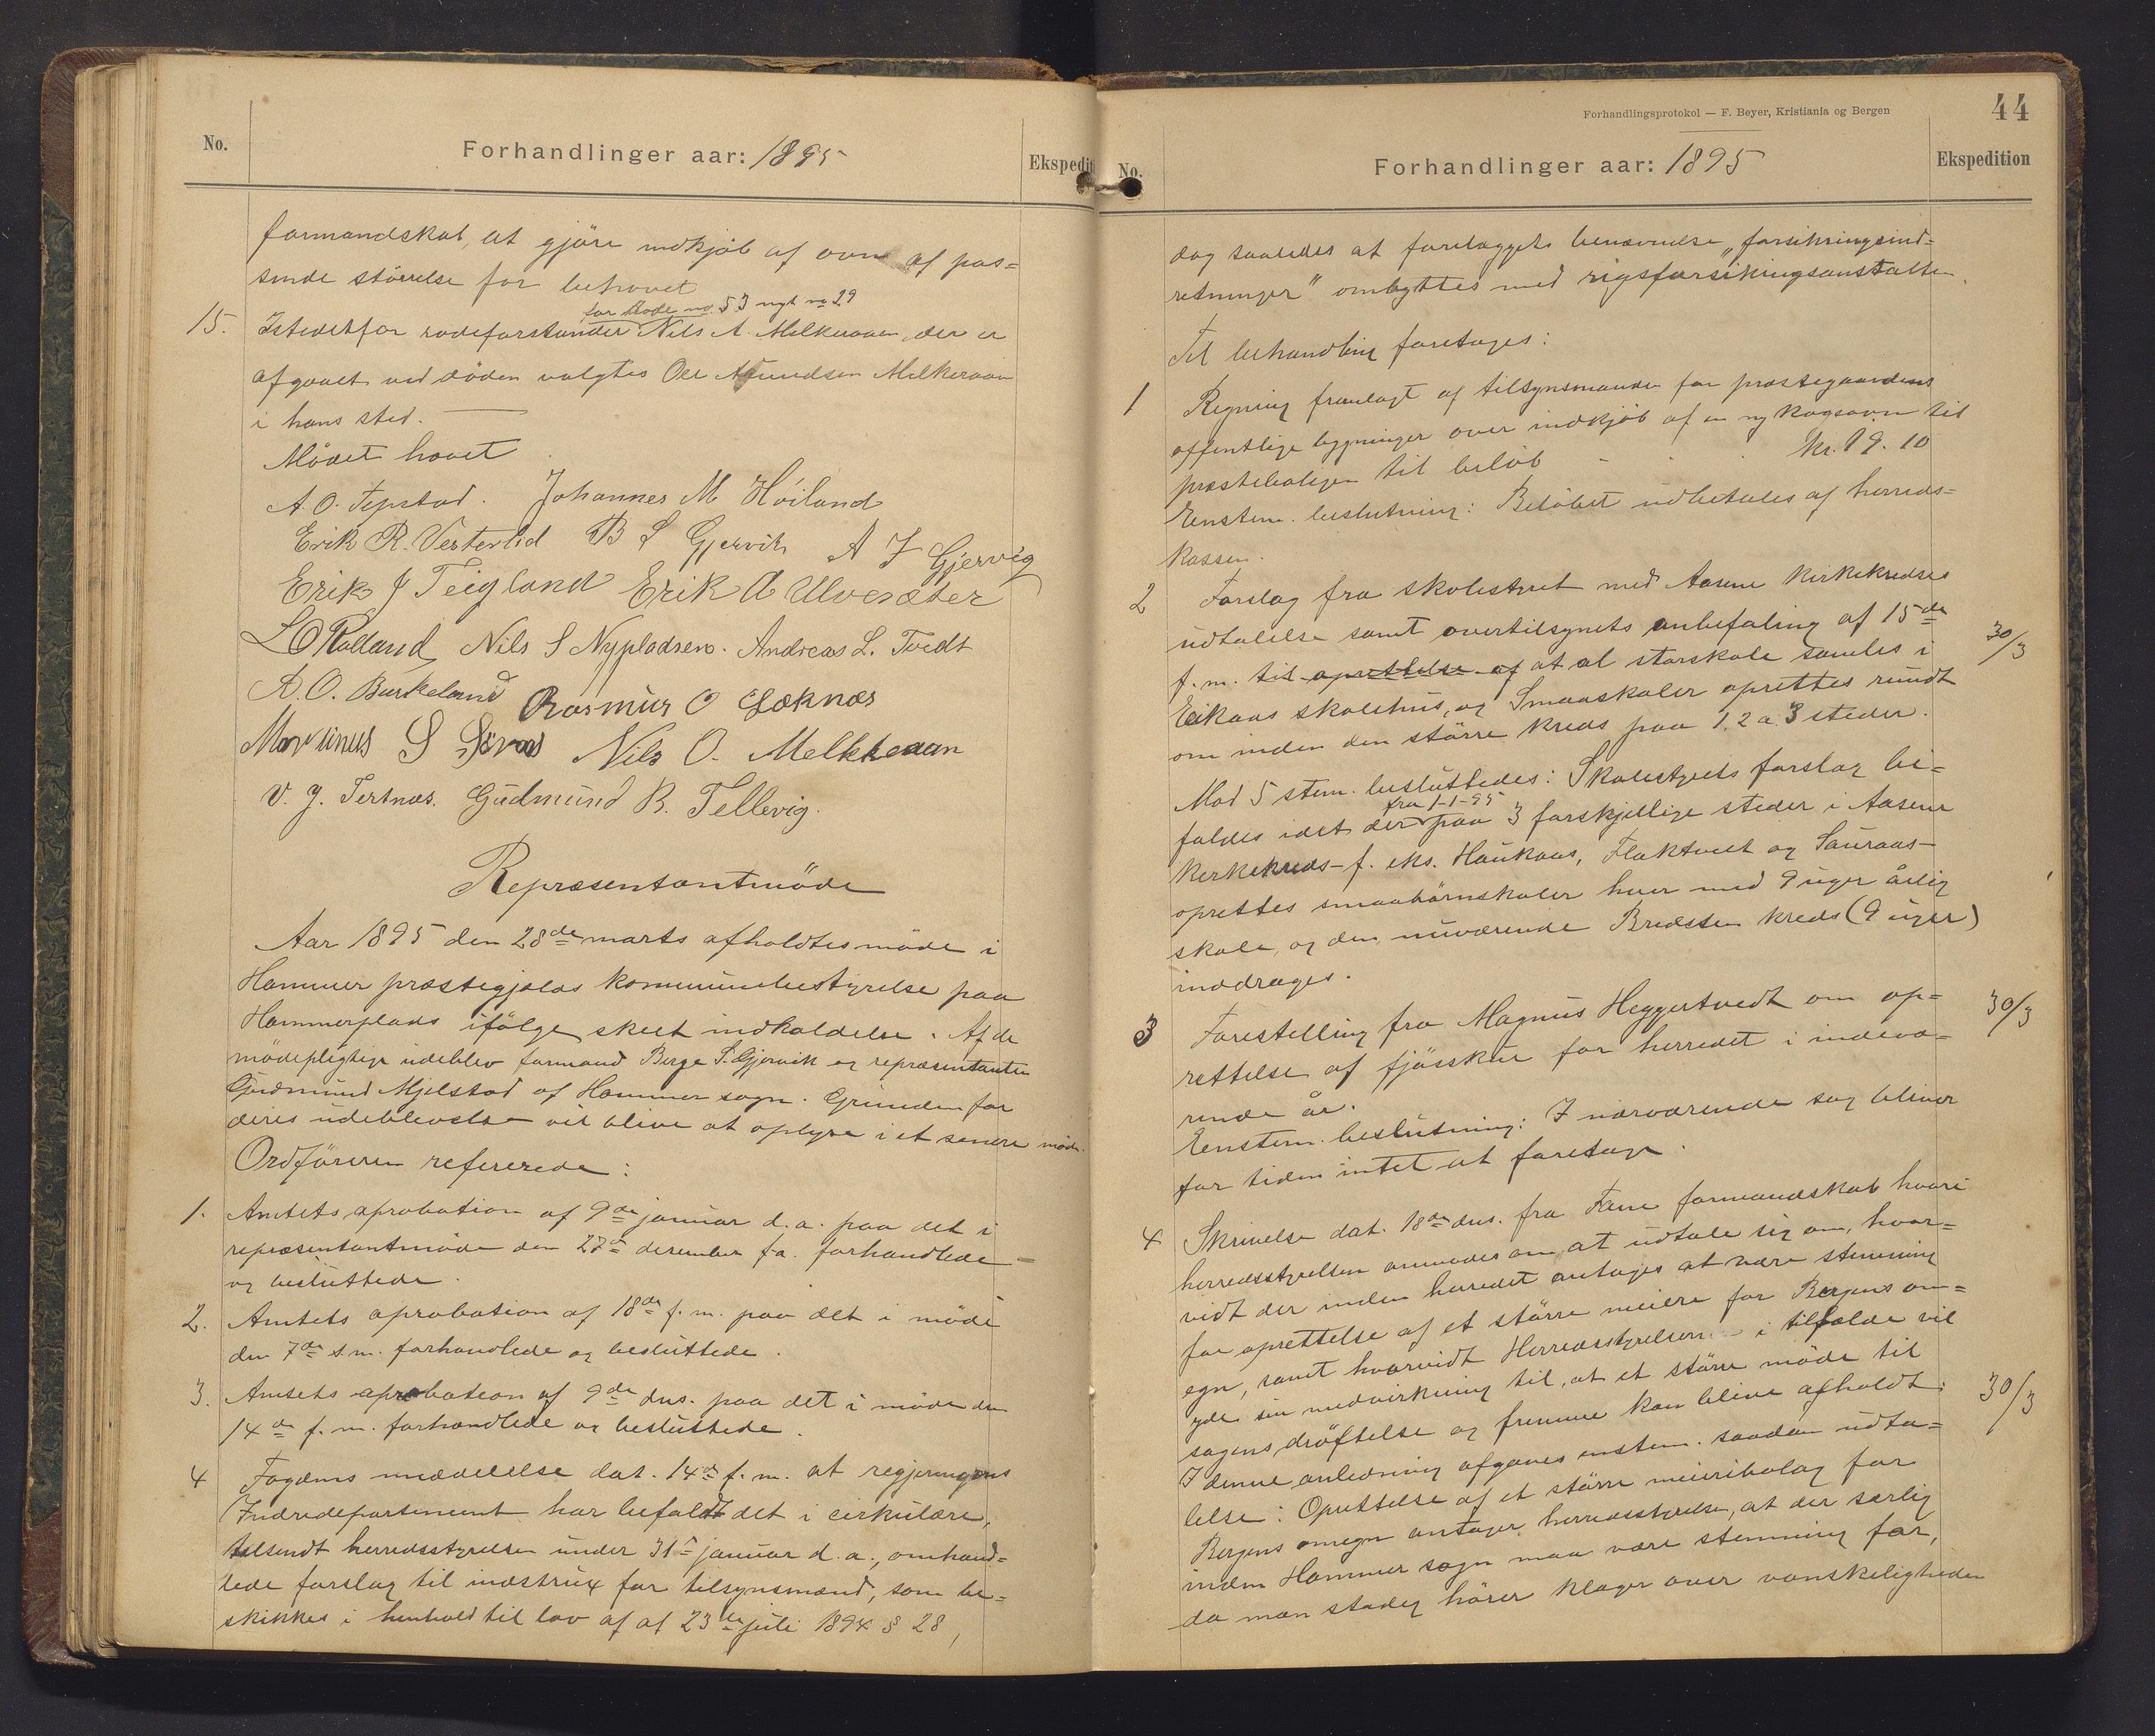 No.
Forhandlinger aar: 1895
Ekspedit
formandskab, at gjöre indkjöb af ovn af pas=
sende störrelse for behovet
for Rode no 53 nyt no 29
15. Istedetfor rodeforstander Nils A. Melkeraaen, der er
afgaaet ved döden valgtes Ole Amundsen Melkeraaen
i hans sted.
Mödet hævet
A. O. Tepstad. Johannes M Höiland
Erik R. Vesterlid B S Gjervik A J Gjervig
Erik J Teigland Erik A Ulvesæter
L O Rolland Nils S Nypladsen. Andreas L. Tvedt
A. O. Burkeland Rasmus O Læknæs
Martinus S Söraas Nils O. Melkheraan
V. J. Tertnæs. Gudmund R. Tellevig.
Repræsentantmöde
Aar 1895 den 28de marts afholdtes möde i
Hammer præstegjelds kommunebestyrelse paa
Hammerplads ifölge skeet indkaldelse. Af de
mödepligtige udeblev formand Berge S. Gjervik og repræsentanten
Gudmund Mjelstad af Hammer sogn. Grunden for
deres udeblevelse vil blive at oplyse i et senere möde.
Ordföreren refererede:
1. Amtets aprobation af 9de januar d.a. paa det i
repræsentantmöde den 27de desember f.a. forhandlede
og besluttede.
2. Amtets aprobation af 18de f.m. paa det i möde
den 7de s.m. forhandlede og besluttede.
3. Amtets aprobation af 9de ds. paa det i möde den
14de f.m. forhandlede og besluttede.
4 Fogdens meddelelse dat. 14de f.m. at regjeringens
Indredepartement har befalet det i cirkulære,
tilsendt herredsstyrelsen under 31te januar d.a., omhand=
lede forslag til indstrux for tilsynsmænd, som be=
skikkes i henhold til lov af af 23de juli 1894 § 28,
Forhandlingsprotokol — F. Beyer, Kristiania og Bergen
44
No.
Forhandlinger aar: 1895
Ekspedition
dog saaledes at forelæggets benævnelse "forsikringsind=
retninger" ombyttes med rigsforsikringsanstalten.
Til behandling foretages:
1 Regning fremlagt af tilsynsmanden for præstegaardens
offentlige bygninger over indkjöb af en ny kogeovn til
præsteboligen til belöb kr. 19.10
Eenstem. beslutning: Belöbet udbetales af herreds=
kassen.
2 Forslag fra skolestyret med Aasene kirkekredses
udtalelse samt overtilsynets anbefaling af 15de
30/3
f.m. til oprettelse af at al storskole samles i
Eikaas skolehus, og Smaaskoler oprettes rundt
om inden den större kreds paa 1, 2 a 3 steder.
Mod 5 stem. besluttedes: Skolestyrets forslag bi=
fra 1-1-95
faldes idet der paa 3 forskjellige steder i Aasene
kirkekreds – f. eks. Haukaas, Flaktveit og Sauraas –
oprettes smaabörnskoler hver med 9 uger årlig
skole, og den nuværende Bredsten kreds (9 uger)
inddrages.
3 Forestelling fra Magnus Heggertvedt om op=
30/3
rettelse af fjösskue for herredet i indevæ=
rende år.
Eenstem. beslutning: I nærværende sag bliver
for tiden intet at foretage.
4 Skrivelse dat. 18de ds. fra Fane formandskab hvori
herredsstyrelsen anmodes om at udtale sig om, hvor=
vidt der inden herredet antages at være stemning
for oprettelse af et större meieri for Bergens om=
egn, samt hvorvidt Herredsstyrelsen – i tilfælde vil
yde sin medvirkning til, at et större möde til
sagens dröftelse og fremme kan blive afholdt.
30/3
I denne anledning afgaves enstem. saadan udta=
lelse: Oprettelse af et större meieribolag for
Bergens omegn antager herredsstyrelsen, at der særlig
inden Hammer sogn maa være stemning for,
da man stadig hörer klager over vanskeligheden